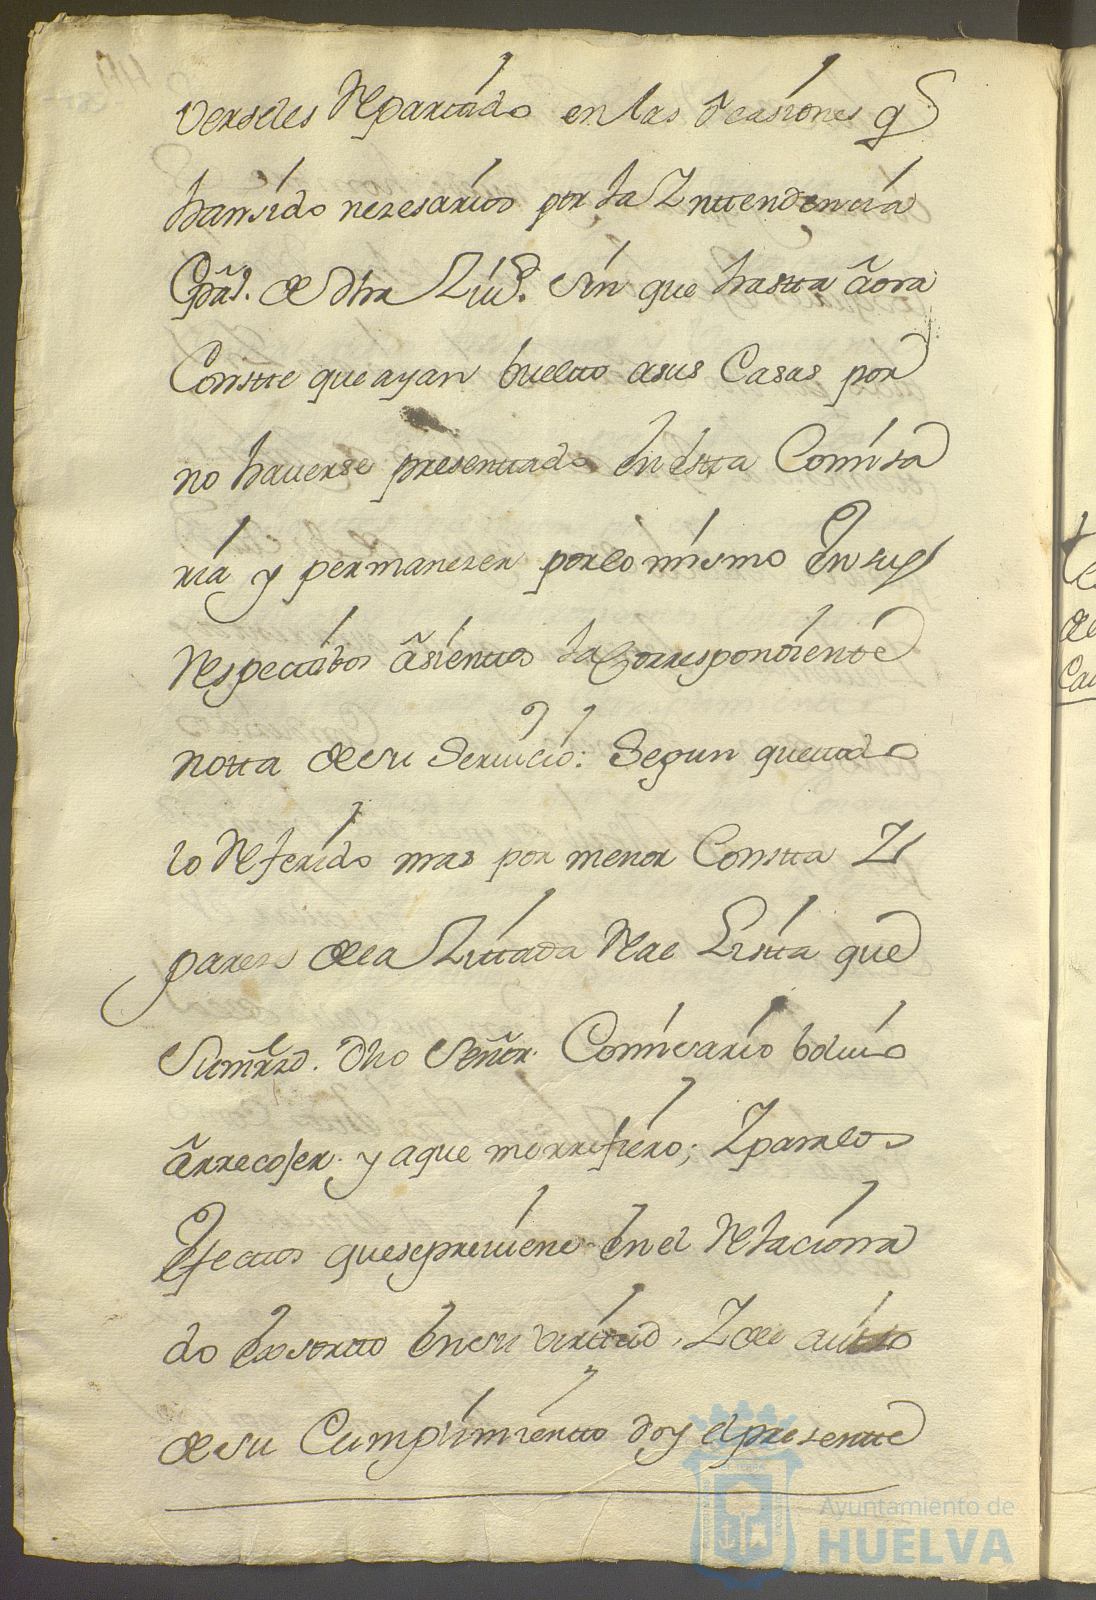 verseles Repartido en las ocasiones q
hansido nezesarios por la Intendencia
Cpãl. de dha Ziud. sin que hastta aora
Constte que ayan buelto asus Casas por
no hauerse presenttado En estta Comisa
ria y permanezer porlo mismo En sus
Respectibos asientos la Correspondiente
notta de su Seruicio: Segun quettodo
lo Referido mas por menor Constta Y
pareze dela Zittada Real Listta que
Sumrzd. dho Señor. Comisario bolbio
arrecojer. y aque merrefiero; Y paralos
Efectos quesepreuiene En el Relaciona
do Exsortto En su virttud. Y de auto
de su Cumplimientto doy el presentte
Ayuntamiento de
HUELVA